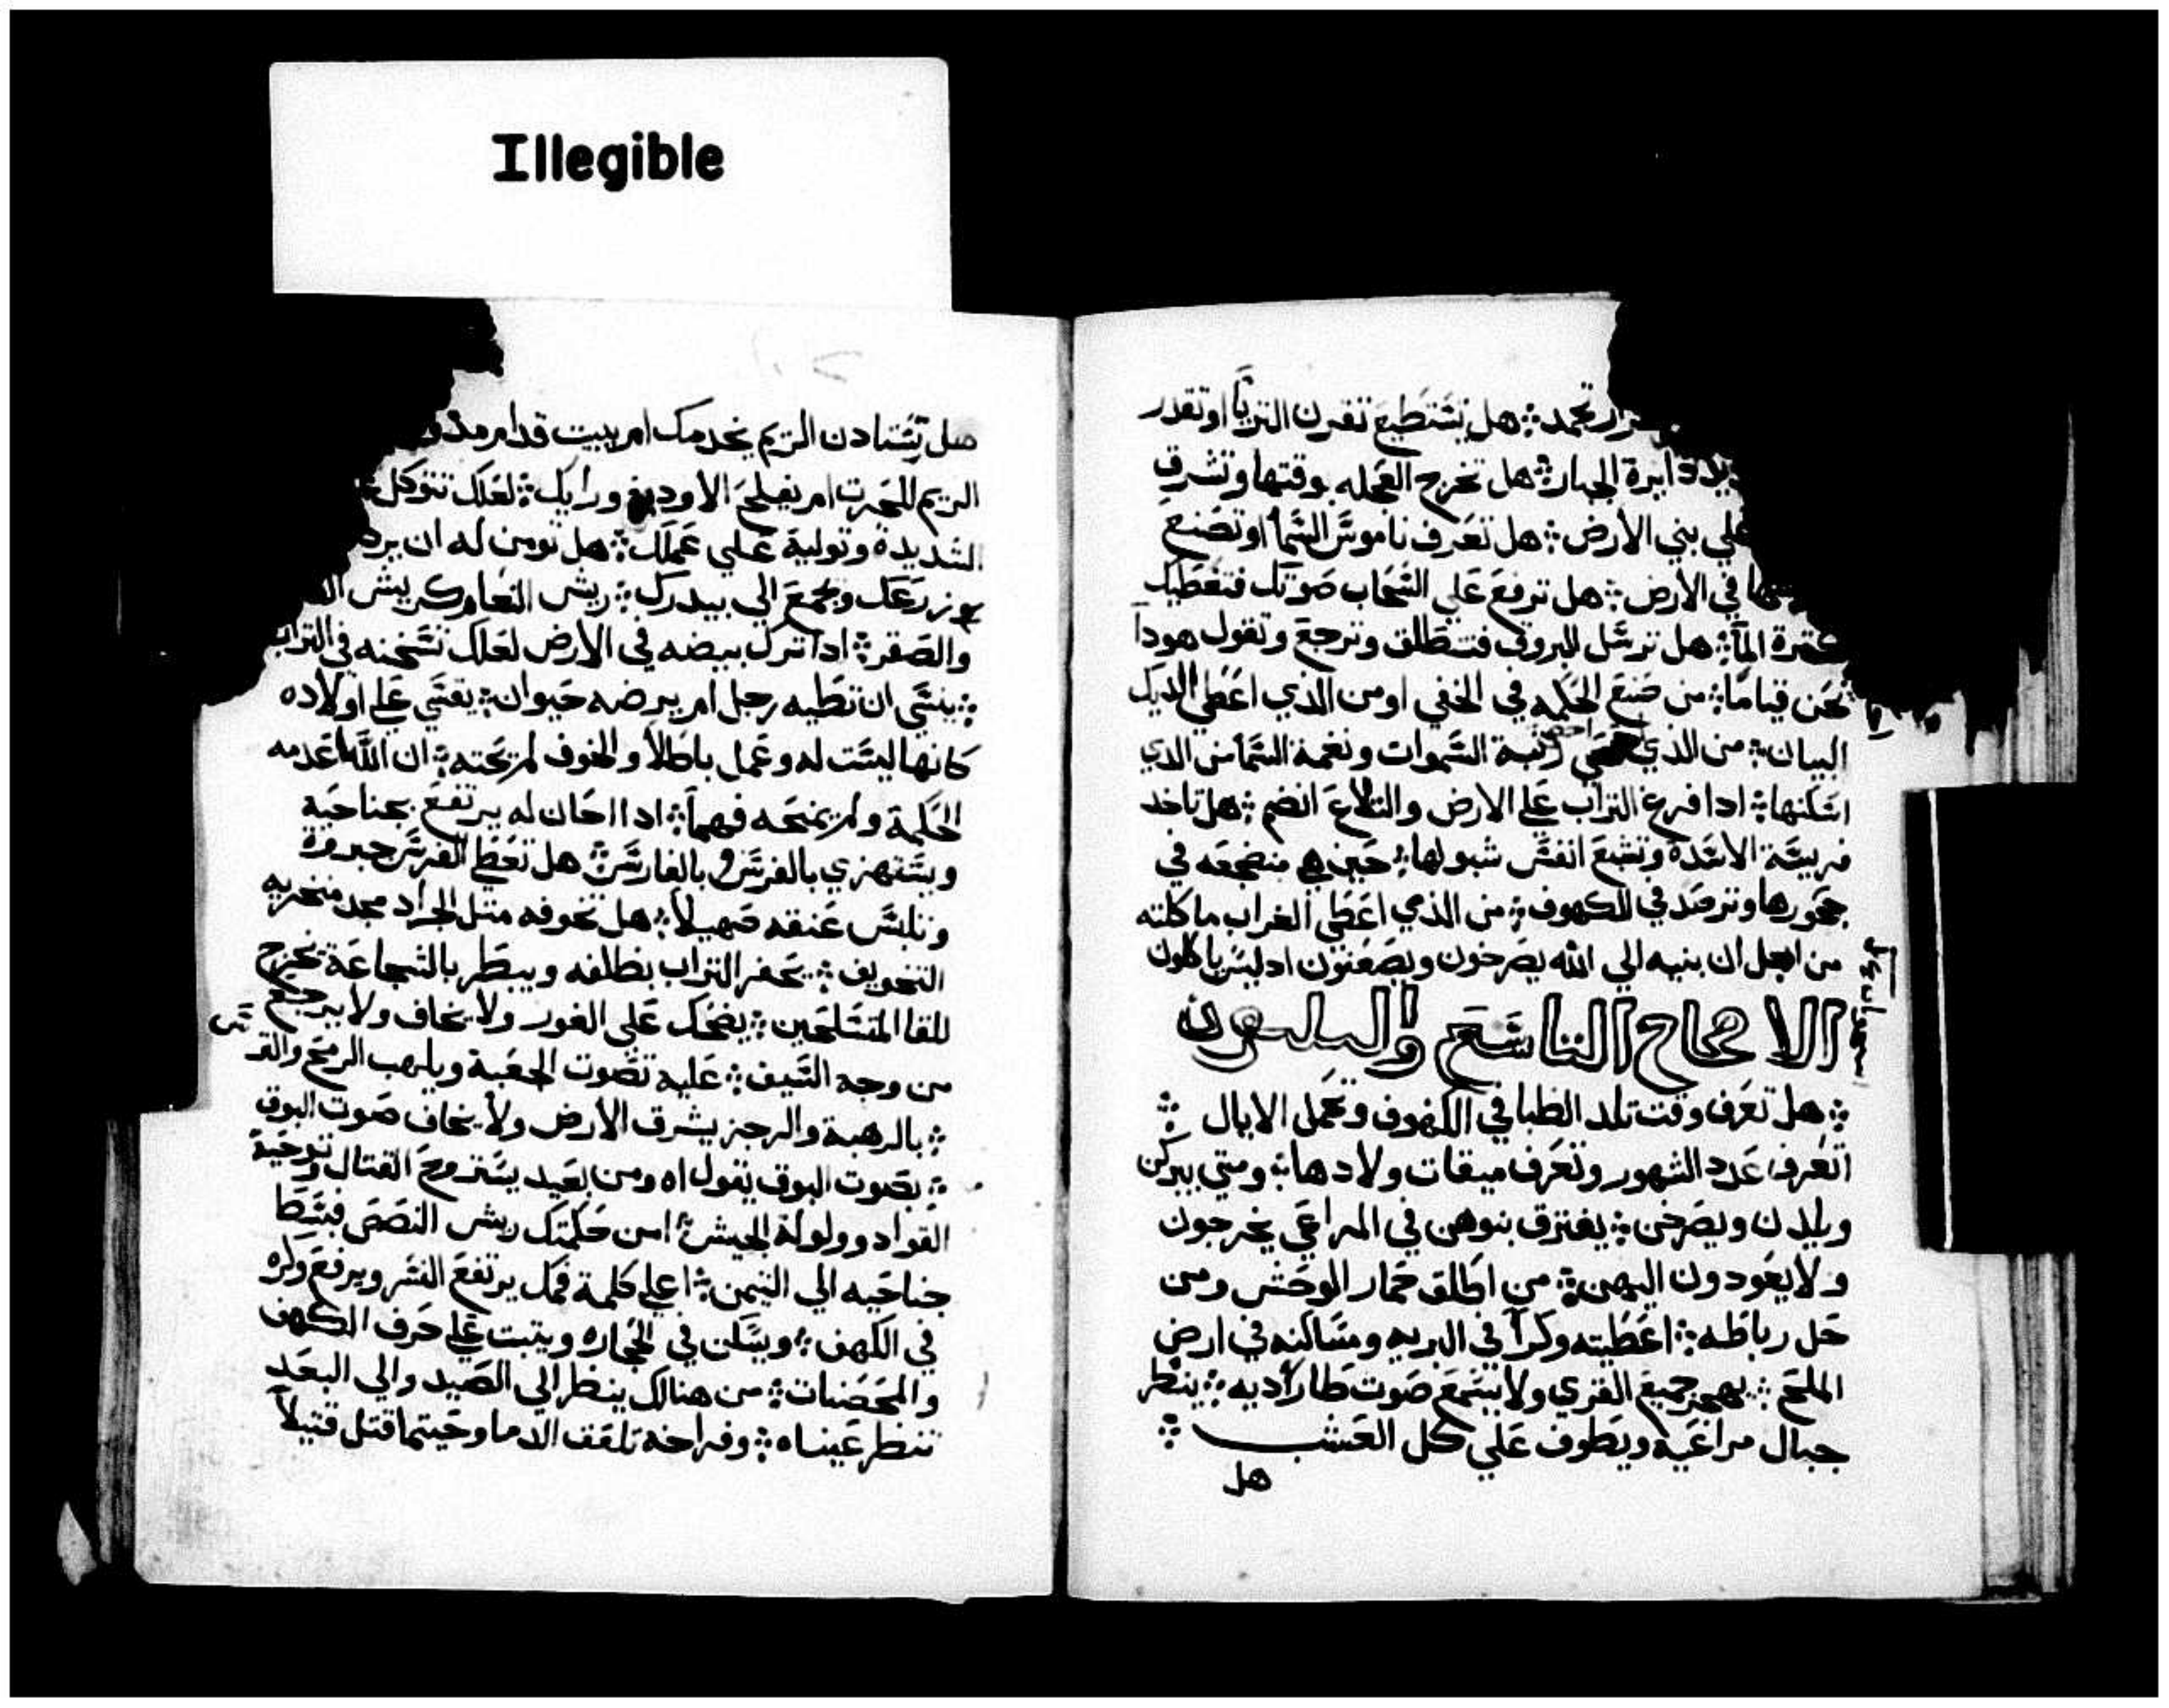 Illegible
تجمد هل تستطيع تقرن التريا او تقدر
دايرة الجبار هل تخرج العجله بوقتها وتشرق
علي بني الأرض هل تعرف ناموس السما او تصنع
في الأرض هل ترفع علي السحاب صوتك فتغطيك
المآ هل ترسل البروق فتنطلق وترجع وتقول هودا
نحن قيامًا من صنع الحكمه في الخفي او من الذي اعطي الديك
البيان من الذي السموات ونغمة السما من الذي
اسكنها ادا افرغ التراب علي الارض والتلاع انضم هل تاخد
فريسة الاسدة وتشبع انفس شبولها حين هي منضجعه في
جحورها وترصد في الكهوف من الذي اعطي الغراب ماكلته
من اجل ان بنيه الي الله يصرخون ويصغنون اد ليس ياكلون
الاصحاح التاسع والتلتون
هل تعرف وقت تلد الظبا في الكهوف وتحمل الايال
اتعرف عدد الشهور وتعرف ميقات ولادها ومتي يبركن
ويلدن ويصرخن يفترق بنوهن في المراعي يخرجون
ولا يعودون اليهن من اطلق حمار الوحش ومن
حل رباطه اعطيته وكرآ في البريه ومساكنه في ارض
الملح يهجر جميع القري ولا يسمع صوت طارآديه ينظر
جبال مراعيه ويطوف علي كل العشب
هل
هل تستادن الريم يخدمك ام يبيت قدام
الريم للحرت ام يفلح الاوديه وراك لعلك تتوكل
الشديدة وتولية علي عملك هل تومن له ان يرد
زرعك ويجمع الي بيدرك ريش النعام كريش
والصقر ادا ترك بيضه في الارض لعلك تسخنه في التراب
ينسي ان تطيه رجل ام يرضه حيوان يقسي علي اولاده
كانها ليست له وعمل باطلآ والخوف لم يحته ان الله اعدمه
الحكمة ولم يمنحه فهمآ ادا احان له يرتفع بجناحية
ويستهزي بالفرس وبالفارس هل تعط الفرس جبروة
وتلبس عنقه صهيلآ هل تخوفه متل الجراد مجد منخريه
التخويف يحفر التراب بظلفه ويبطر بالشجاعة يخرج
للقا المتسلحين يضحك علي الغور ولا يخاف ولا يرجع
من وجه السيف عليه تصوت الجعبة ويلهب الرمح
بالرهبة والرجز يشرق الأرض ولا يخاف صوت البوق
بصوت البوق يقول اه ومن بعيد يستروح القتال
القواد وولولة الجيش امن حكمتك ريش النصص فبسط
جناحيه الي التيمن اعلي كلمة فمك يرتفع النسر ويرفع وكره
في الكهف ويسكن في الحجاره ويتبت علي حرف الكهف
والمحصنات من هنالك ينظر الي الصيد والي البعد
تنظر عيناه وفراخه تلقف الدما وحيتما قتل قتيلآ